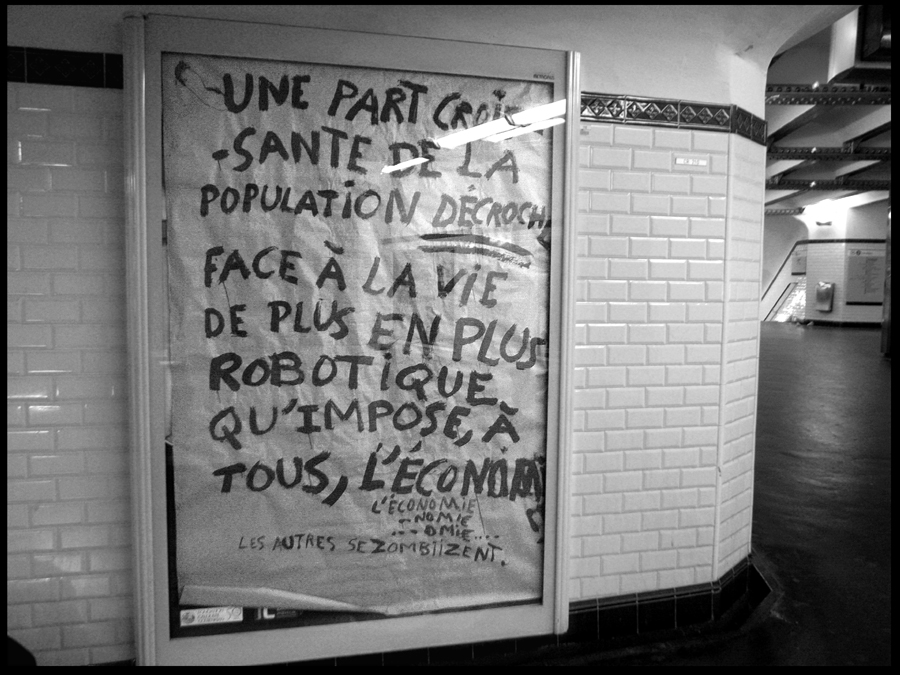 -UNE PART CROIS
-SANTE DE LA
POPULATION DÉCROCH
FACE À LA VIE
DE PLUS EN PLUS
ROBOTIQUE
QU'IMPOSE, À
TOUS, L'ÉCONOM
L'ÉCONOMIE
..NOMIE
...OMIE....
LES AUTRES SE ZOMBIIZENT.